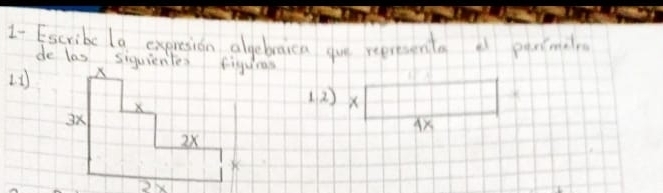 1- Escribe la expresión algebraica que representa el perímetro
de las siguientes figuras
1.1) x
1.2) x
x
3x
4x
2x
x
2x